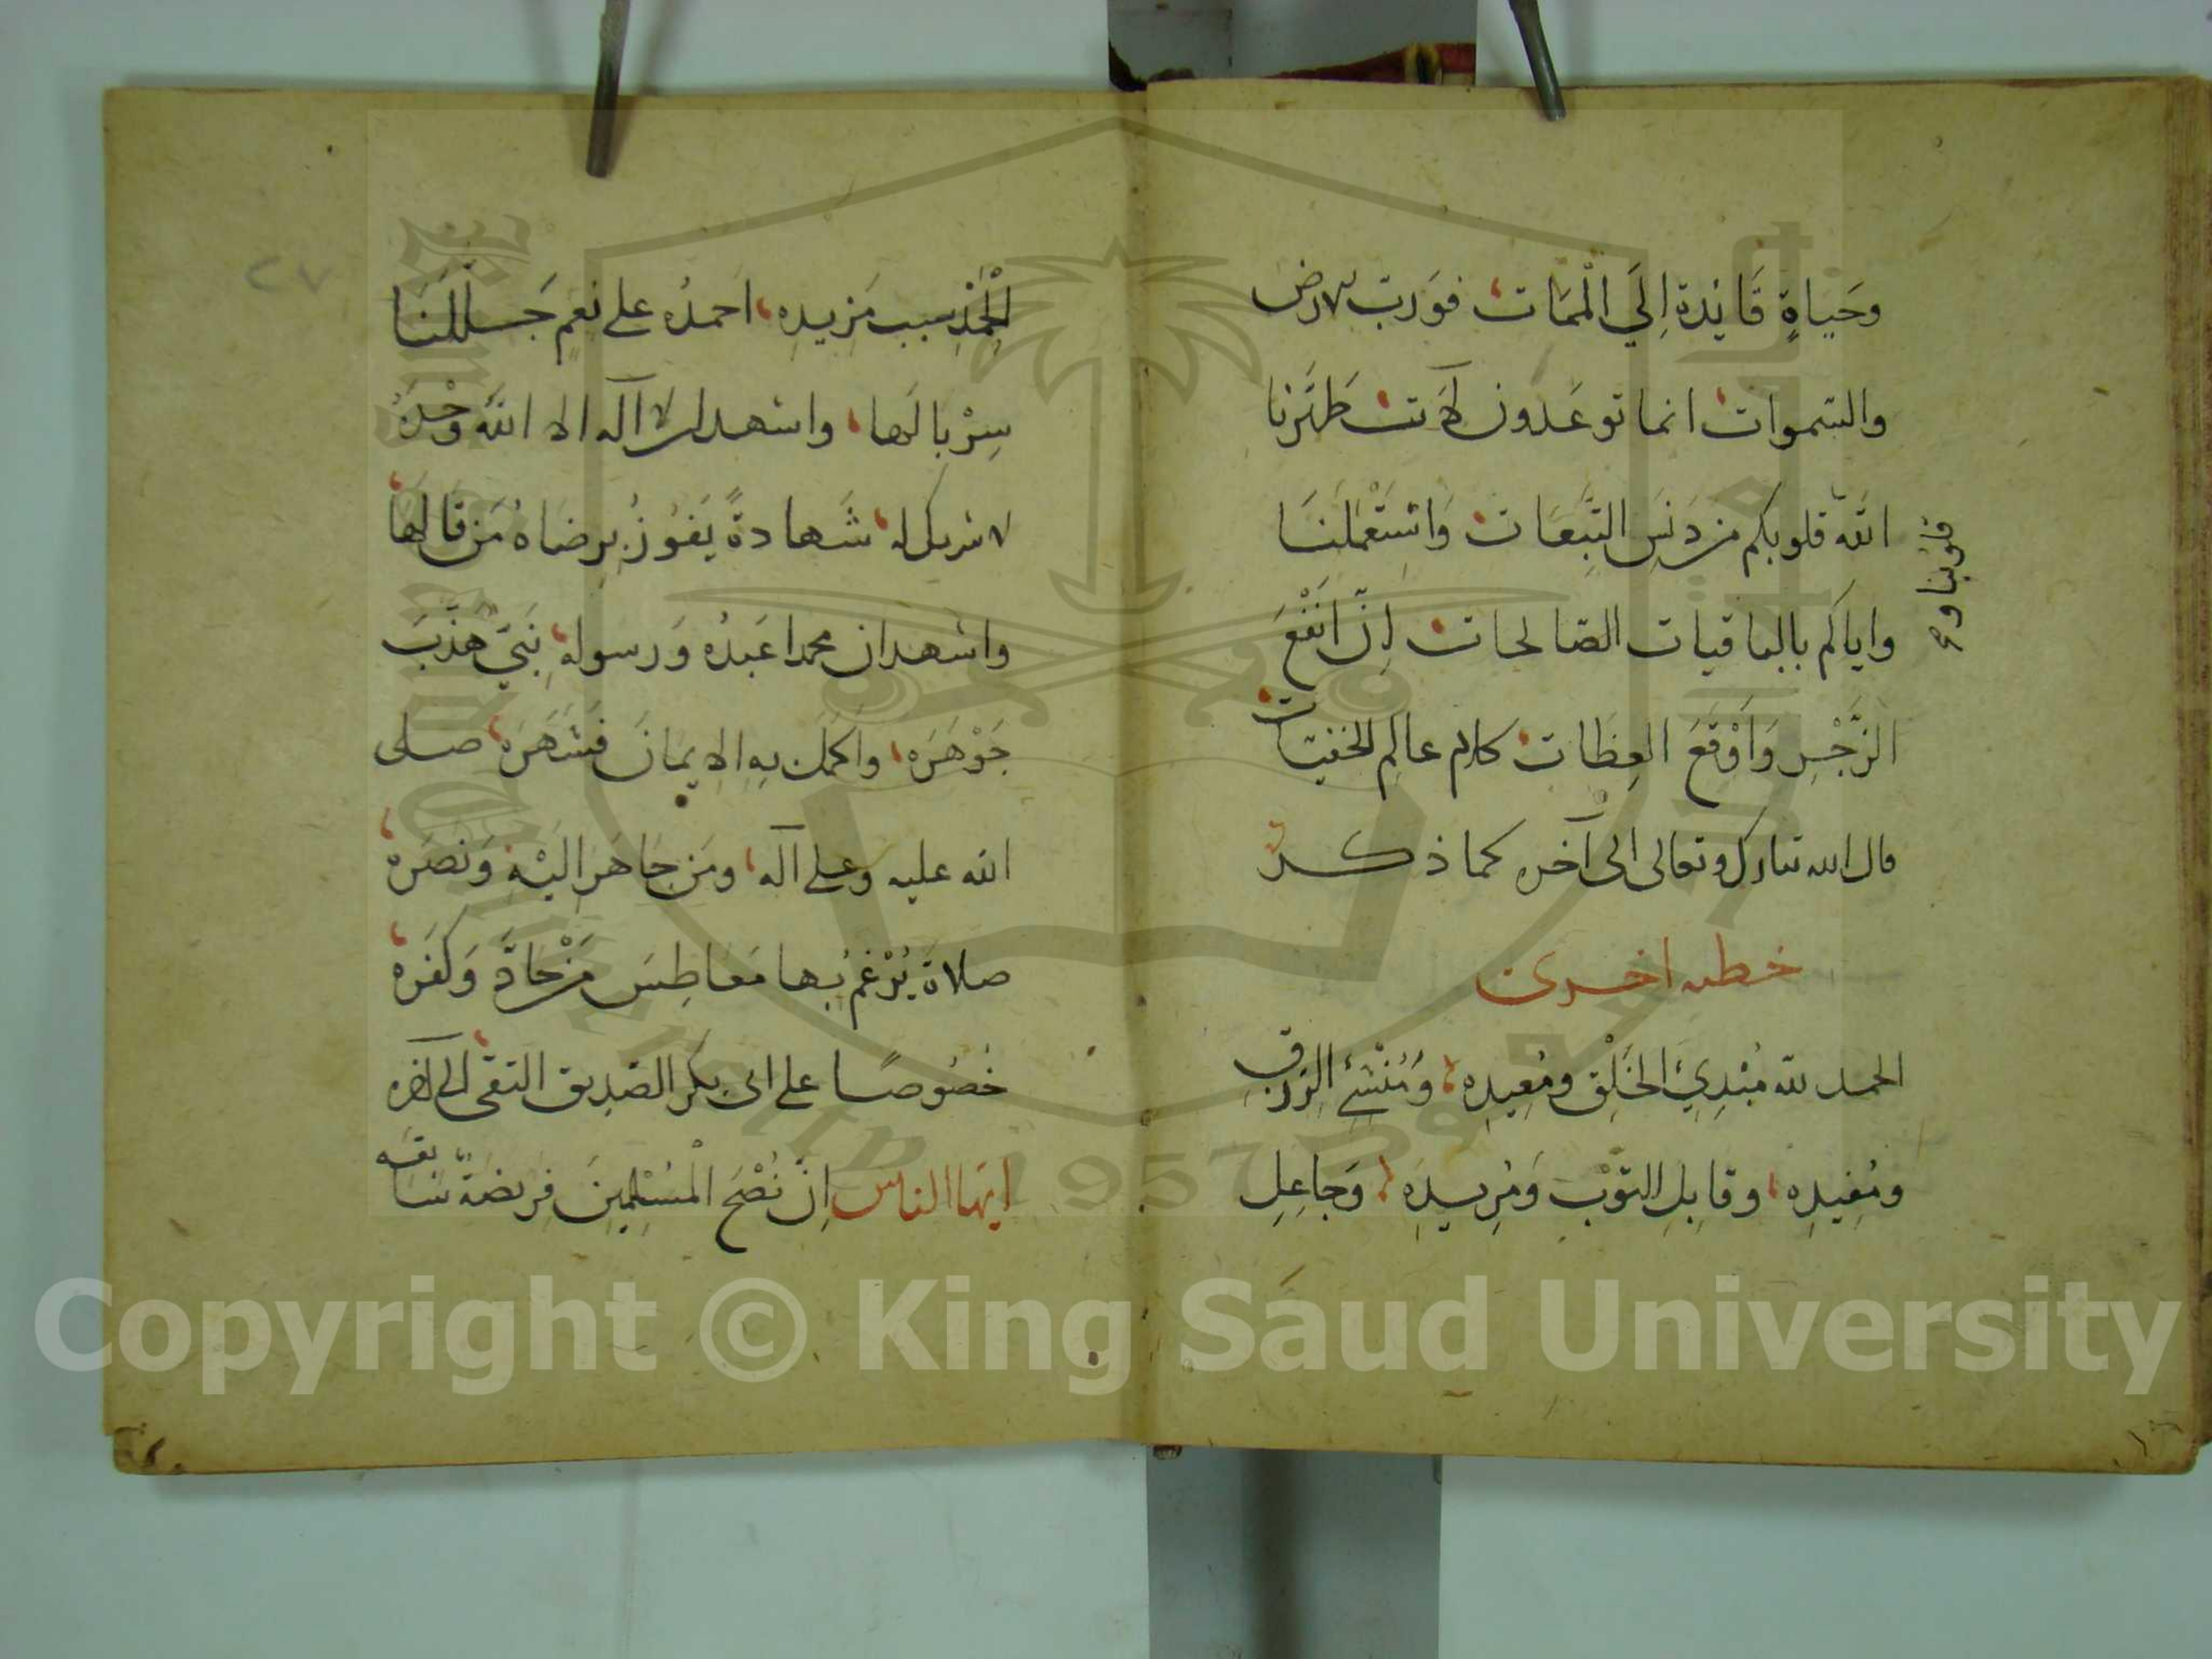 وحَياةٍ قَائِدة اِلَي الْمَمَات فوَربّ الارض
والسّموات انما توعَدون لآت طَهَّرنا
اللّه قلوبكم من دَنَسِ التَّبِعَات وَاسْتَعْمَلَنَا
واياكم بالباقيات الصّالحات اِنّ انْفَعَ
الزَّجْرِ وَاَوْقَعَ العِظَات كلام عالِم الخفيّات
قال الله تبارك وتعالى الى آخره كما ذكر
قلوبنا و
خطبه اخرى
الحمد للّه مُبْدِئِ الخَلْق ومُعِيدِه وَمُنْشِئ الرِزق
ومُفِيدِه وقابِلِ التوْبِ وَمُرِيدِه وَجاعِلِ
٢٧
الْحَمْدِ سبب مَزِيدِه احمدُه على نِعَمٍ جَللَنَا
سِرْبالَها واشهد ان لا آله الا اللّه وحْدَهُ
لا شريك له شَهادةً يَفوُزُ بِرِضاهُ مَن قالها
واشهد ان محمدا عبدُه وَرسوله نَبيّ هذَّبَ
جَوْهَرَه واكملَ بِهِ الاِيمَانَ فَشَهَرَه صلى
الله عليه وعلى آله ومَن هاجَر اليْه وَنصَره
صلاةً يُرْغَم بها مَعَاطِسَ مَنْ حادَّ وَكفَره
خُصُوصًا على ابى بكر الصّديق التقى الى آخره
ايّها الناس اِنّ نُصْحَ الْمُسْلِمِينَ فريضة سَابقه
Copyright © King Saud University
1957